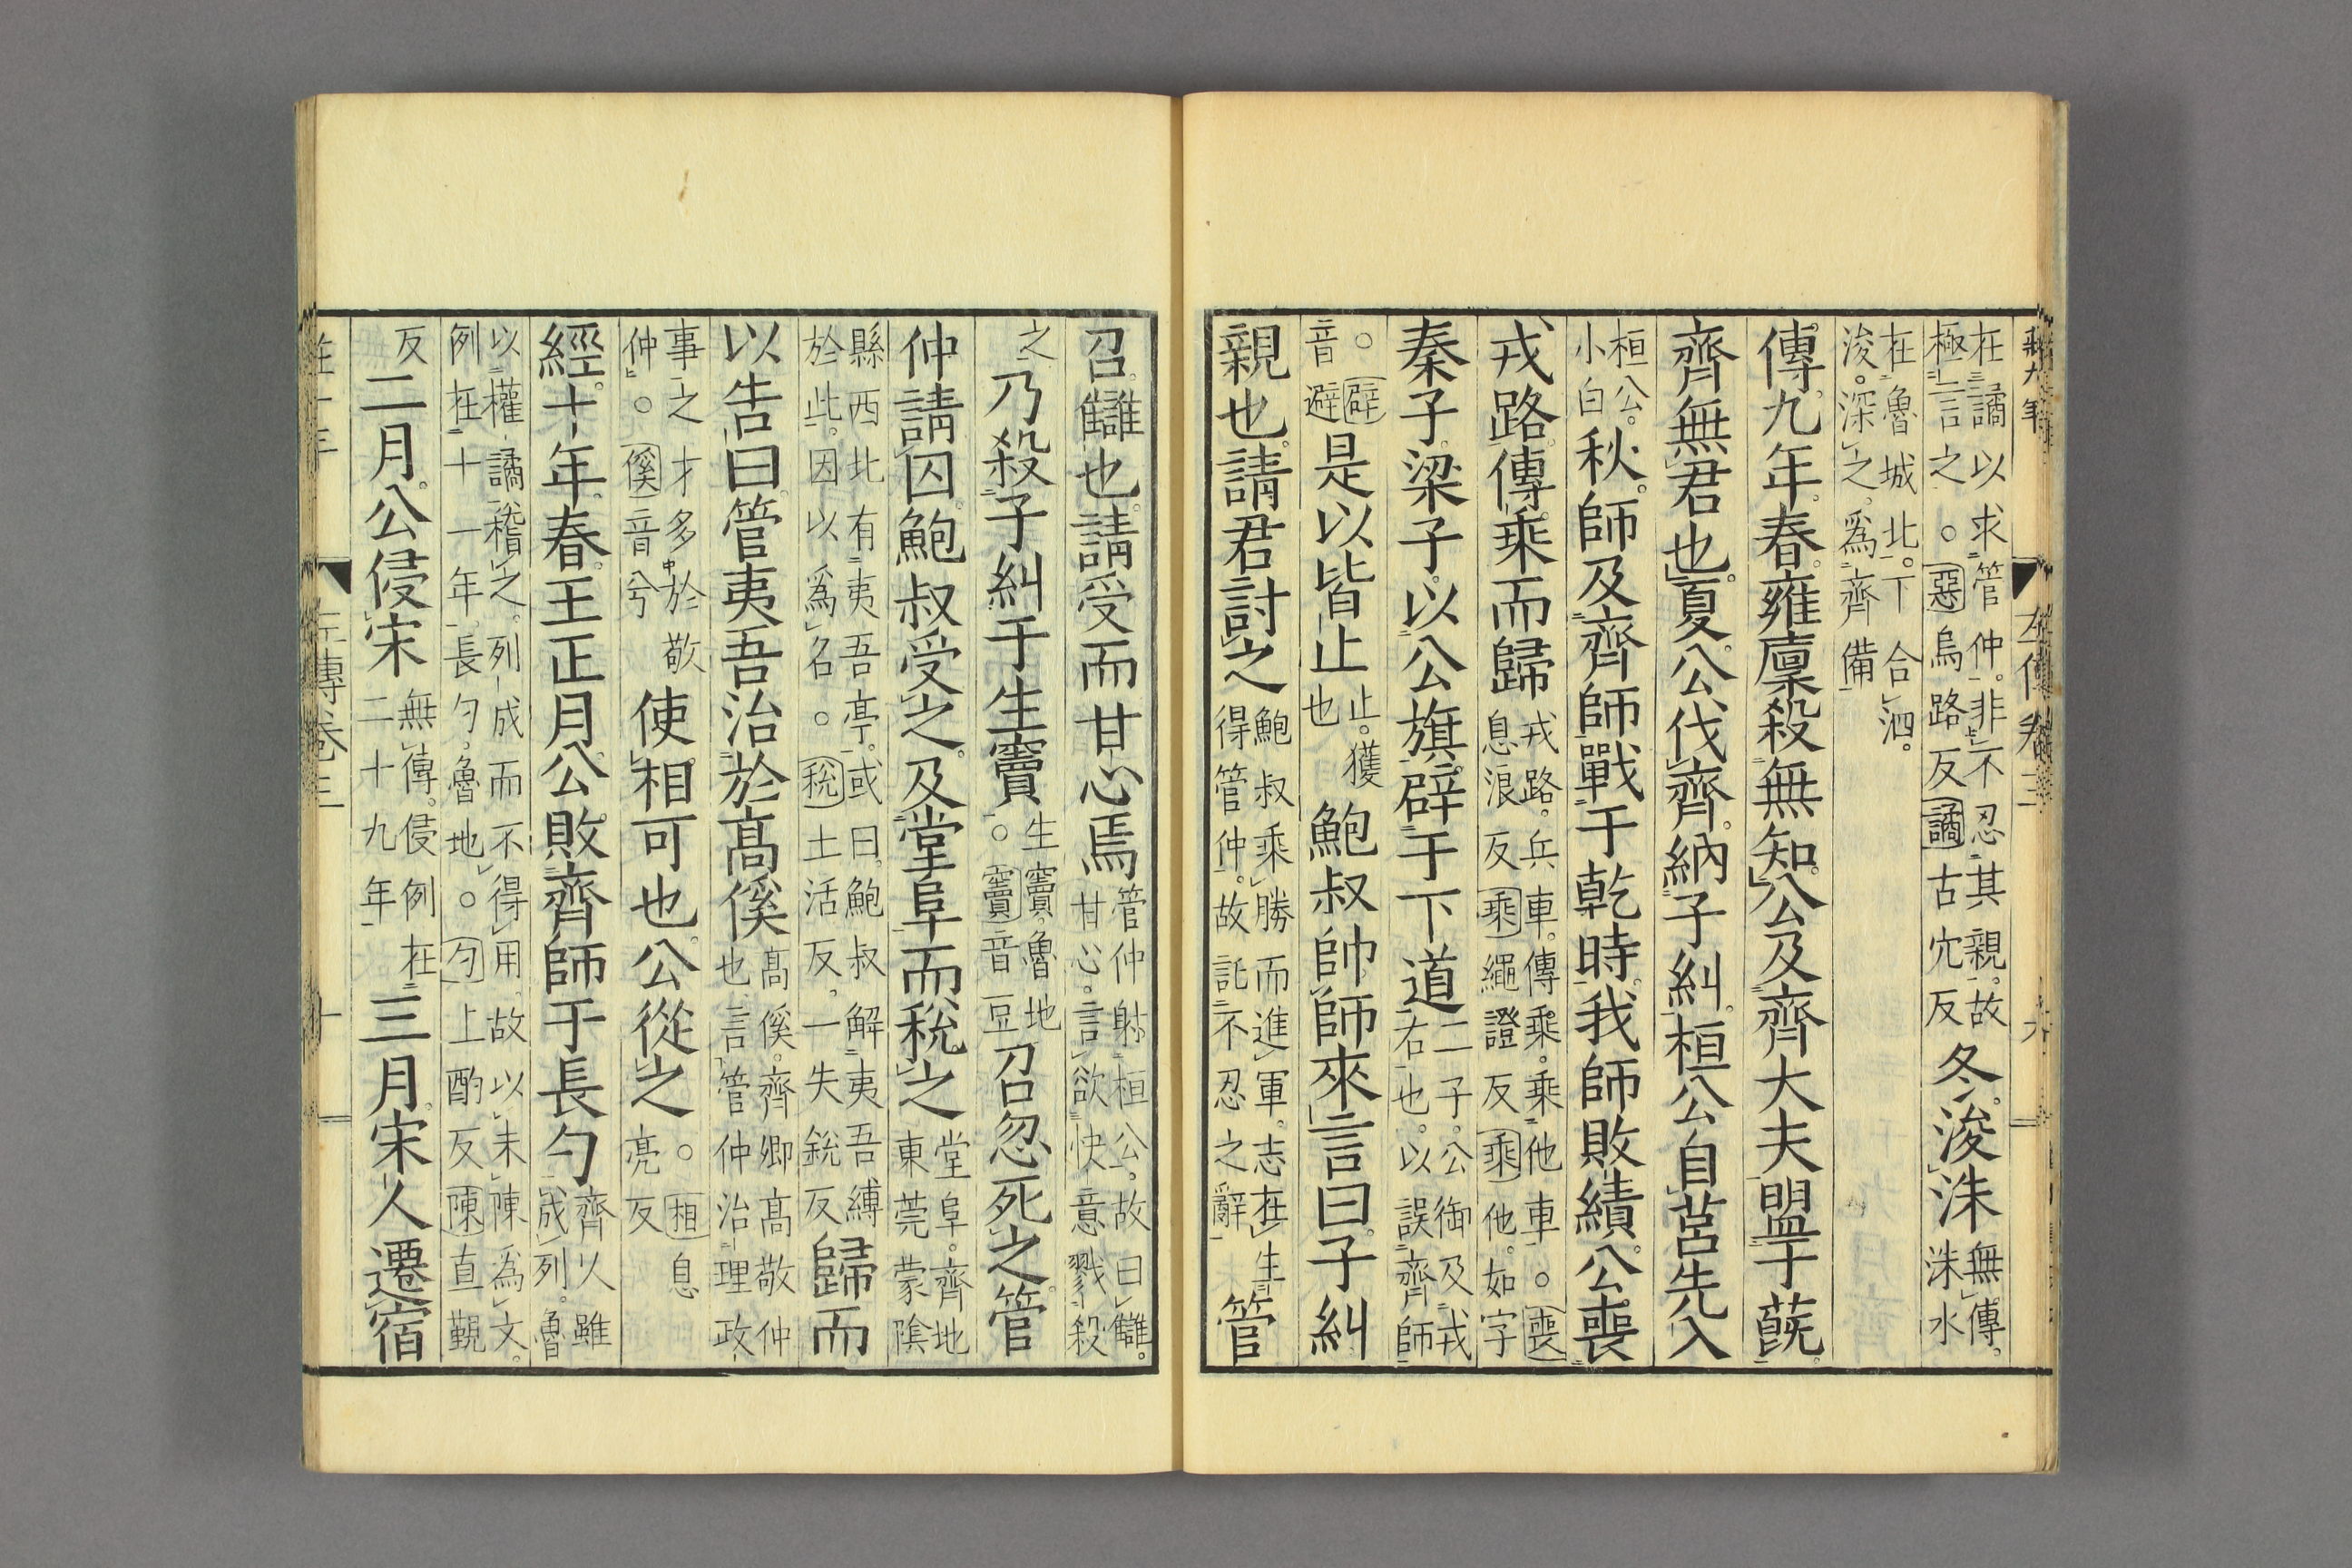 左傳卷三
在譎以求管仲。非不忍其親。故極言之。○惡烏路反譎古穴反冬。浚洙無傳。洙水
在魯城北。下合泗。浚。深之。爲齊備
傳。九年。春。雍廩殺無知。公及齊大夫盟于蔇。
齊無君也。夏。公伐齊。納子糾。桓公自莒先入
桓公。小白秋。師及齊師戰于乾時。我師敗績。公喪
戎路。傳乘而歸戎路。兵車。傳乘。乘他車。○喪息浪反乘繩證反乘他。如字
秦子。梁子。以公旗。辟于下道二子。公御及戎右也。以誤齊師
○辟音避是以皆止止。獲也鮑叔帥師來。言曰。子糾
親也。請君討之鮑叔乘勝而進軍。志在生得管仲。故託不忍之辭管
召讎也。請受而甘心焉管仲射桓公。故曰讎。甘心。言欲快意戮殺
之乃殺子糾于生竇生竇。魯地。○竇音豆召忽死之。管
仲請囚。鮑叔受之。及堂阜而稅之堂阜。齊地東莞蒙陰
縣西北有夷吾亭。或曰。鮑叔解夷吾縛於此。因以爲名。○稅土活反。一失銳反歸而
以告曰。管夷吾治於高傒高傒。齊卿高敬仲也。言管仲治理政
事之才多於敬仲。○傒音兮使相可也。公從之○相息亮反
經。十年。春。王正月。公敗齊師于長勺齊人雖成列。魯
以權譎稽之。列成而不得用。故以未陳爲文。例在十一年。長勺。魯地。○勺上酌反陳直覲
反二月。公侵宋無傳。侵例在二十九年三月。宋人遷宿
莊十年 左傳卷三 十